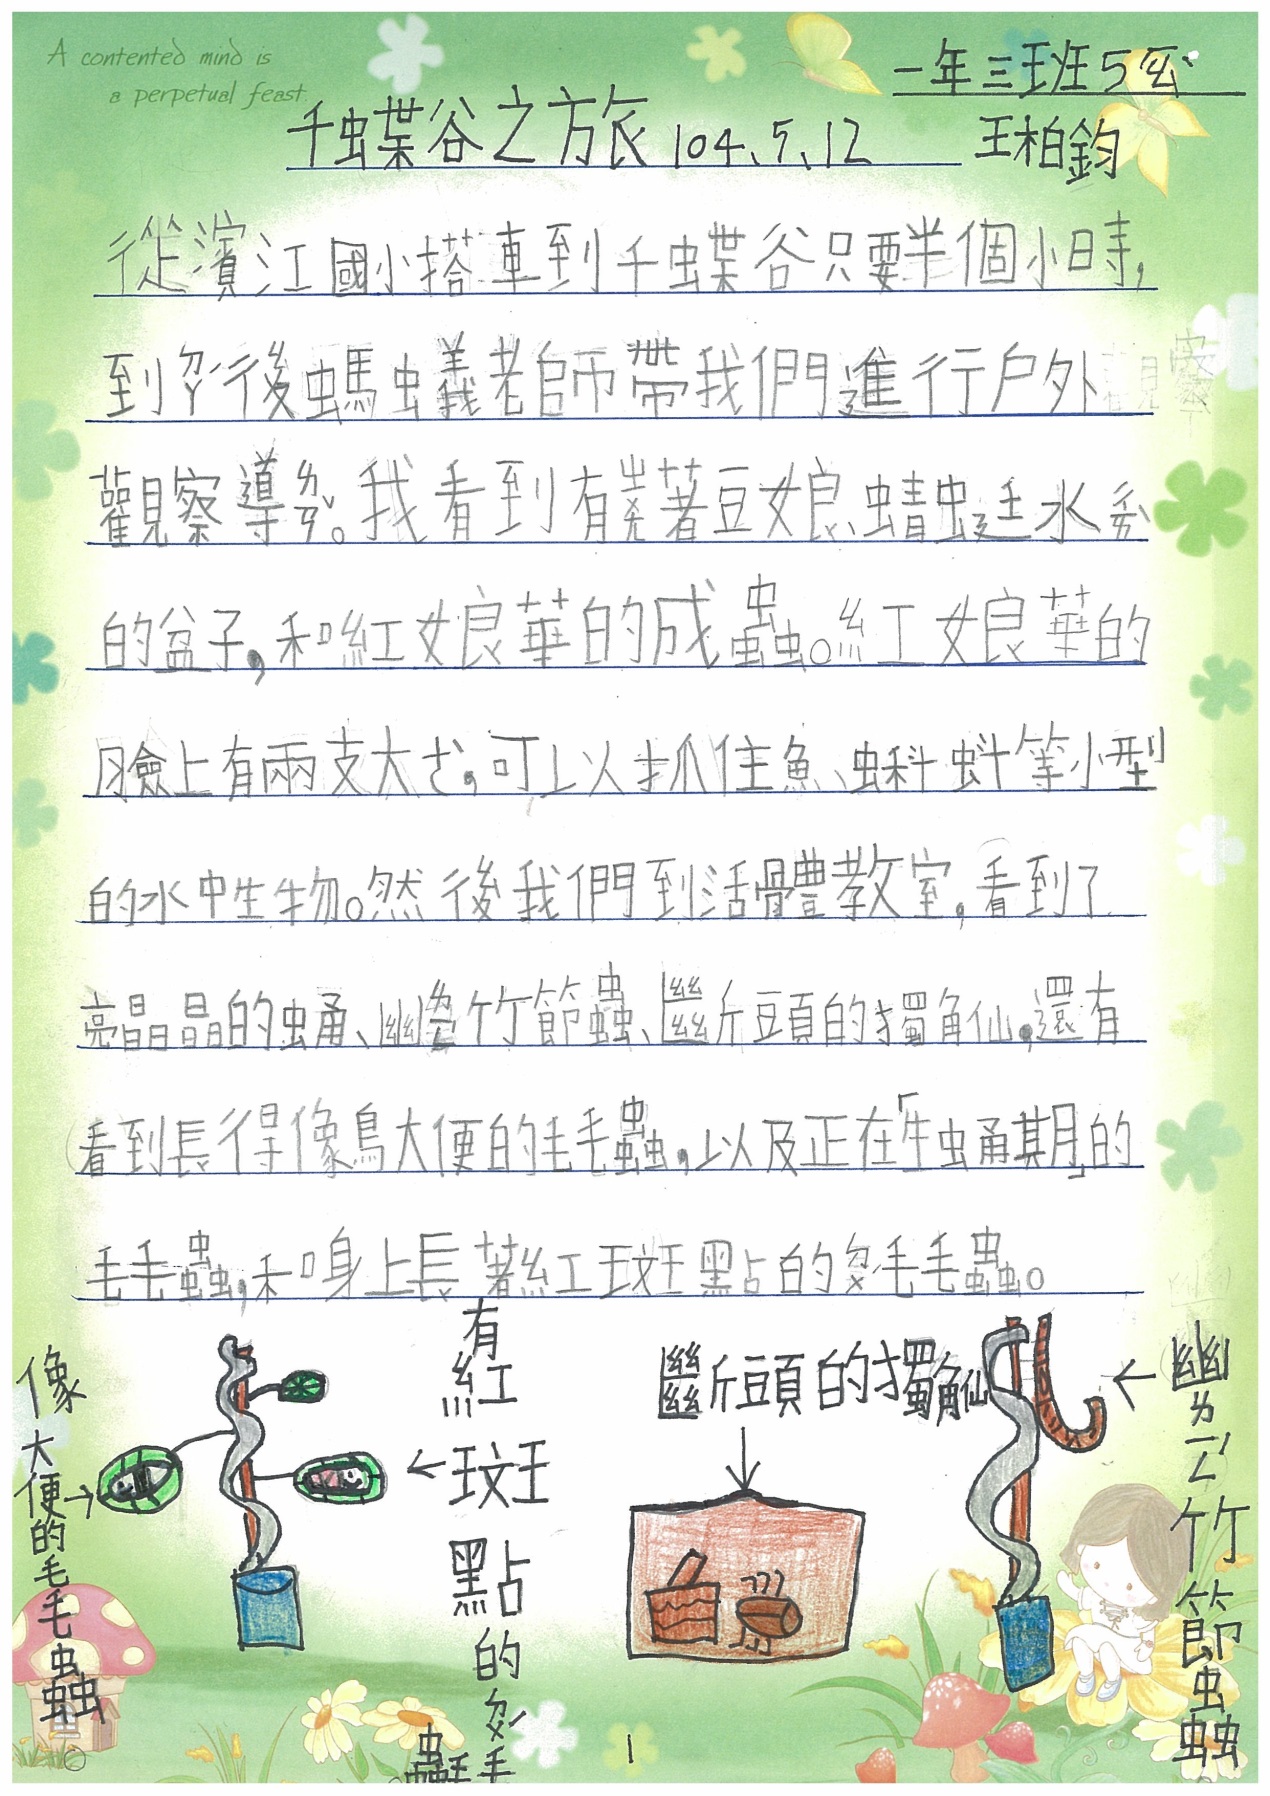 A contented mind is
a perpetual feast.
一年三班5ㄏㄠˋ
千蝶谷之方旅104、5、12
王柏鈞
從濱江國小搭車到千蝶谷只要半個小時，
到ㄗㄏ行後螞蟻老師帶我們進行戶外
觀察導ㄌㄢˇ。我看到有養著豆娘、蜻蜓水ㄔㄞˊ
的盆子，和紅娘華的成蟲。紅娘華的
臉上有兩支大ㄜ，可以抓住魚、蝌蚪等小型
的水中生物。然後我們到活體教室，看到了
亮晶晶的蛹、幽ㄌㄧㄥˊ竹節蟲、斷頭的獨角仙，還有
看到長得像鳥大便的毛毛蟲，以及正在「生蛹期」的
毛毛蟲，和身上長著紅斑點的ㄉㄨˊ毛毛蟲。
像大便的毛毛蟲
有紅斑點的ㄉㄨˊ毛毛蟲
斷頭的獨角仙
幽ㄌㄧㄥˊ竹節蟲
1